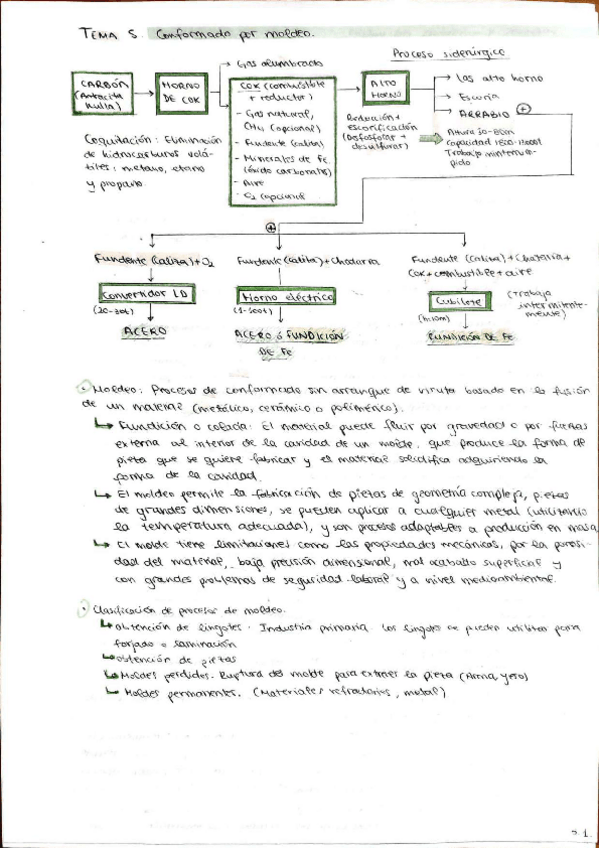 TEMA 5. Conformado por moldeo.
Proceso siderúrgico
CARBÓN
(Antracita
hulla)
HORNO
DE COK
Gas alumbrado
COK (combustible
+ reductor)
- Gas natural,
CH4 (opcional)
- Fundente (caliza)
- Minerales de Fe
(óxido carbonatos)
- Aire
- O2 opcional
ALTO
HORNO
Gas alto horno
Escoria
ARRABIO
Coquización: Eliminación
de hidrocarburos volá-
tiles: metano, etano
y propano.
Reducción +
escorificación
(desfosforar +
desulfurar)
Altura 30-80m
Trabajo ininterrum-
pido
Fundente (caliza) + O2
Convertidor LD
ACERO
Fundente (caliza) + Chatarra
Horno eléctrico
ACERO ó FUNDICIÓN
DE Fe
Fundente (caliza) + Chatarra +
Cok + combustible + aire
Cubilote
(Trabajo
intermitente-
mente)
FUNDICIÓN DE Fe
· Moldeo: Procesos de conformado sin arranque de viruta basado en la fusión
de un material (metálico, cerámico o polimérico).
Fundición o colada: El material puede fluir por gravedad o por fuerzas
externa al interior de la cavidad de un molde, que produce la forma de
pieza que se quiere fabricar y el material solidifica adquiriendo la
forma de la cavidad.
El moldeo permite la fabricación de piezas de geometría compleja, piezas
de grandes dimensiones, se pueden aplicar a cualquier metal (utilizando
la temperatura adecuada), y son procesos adaptables a producción en masa
El molde tiene limitaciones como las propiedades mecánicas, por la porosi-
dad del material, baja precisión dimensional, mal acabado superficial y
con grandes problemas de seguridad laboral y a nivel medioambiental.
· Clasificación de procesos de moldeo.
Obtención de lingotes. Industria primaria. Los lingotes se pueden utilizar para
forjado o laminación
Obtención de piezas
Moldes perdidos. Ruptura del molde para extraer la pieza (Arena, yeso)
Moldes permanentes. (Materiales refractarios, metal)